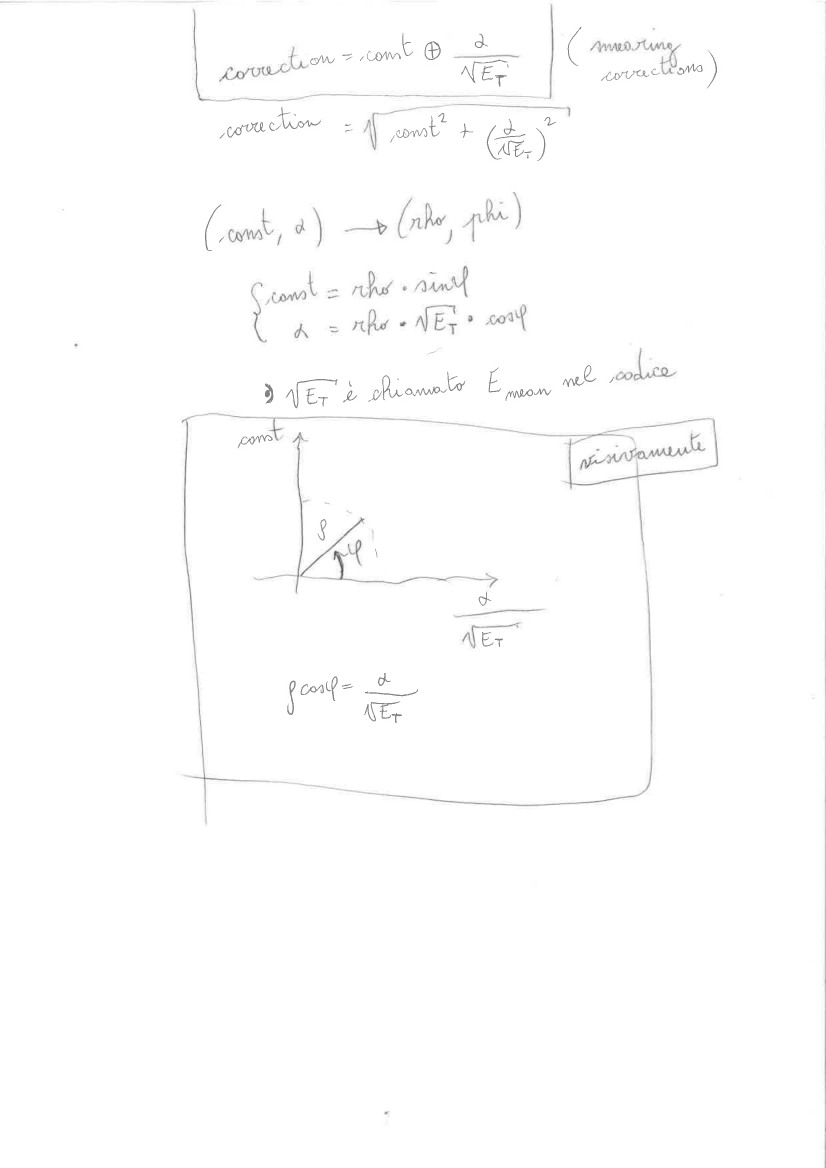 correction = const ⊕ α/√E_T (smearing corrections)
correction = √(const² + (α/√E_T)²)
(const, α) → (rho, phi)
{ const = rho · sinφ
α = rho · √E_T · cosφ
√E_T è chiamato E_mean nel codice
visivamente
const
ρ φ
α/√E_T
ρ cosφ = α/√E_T